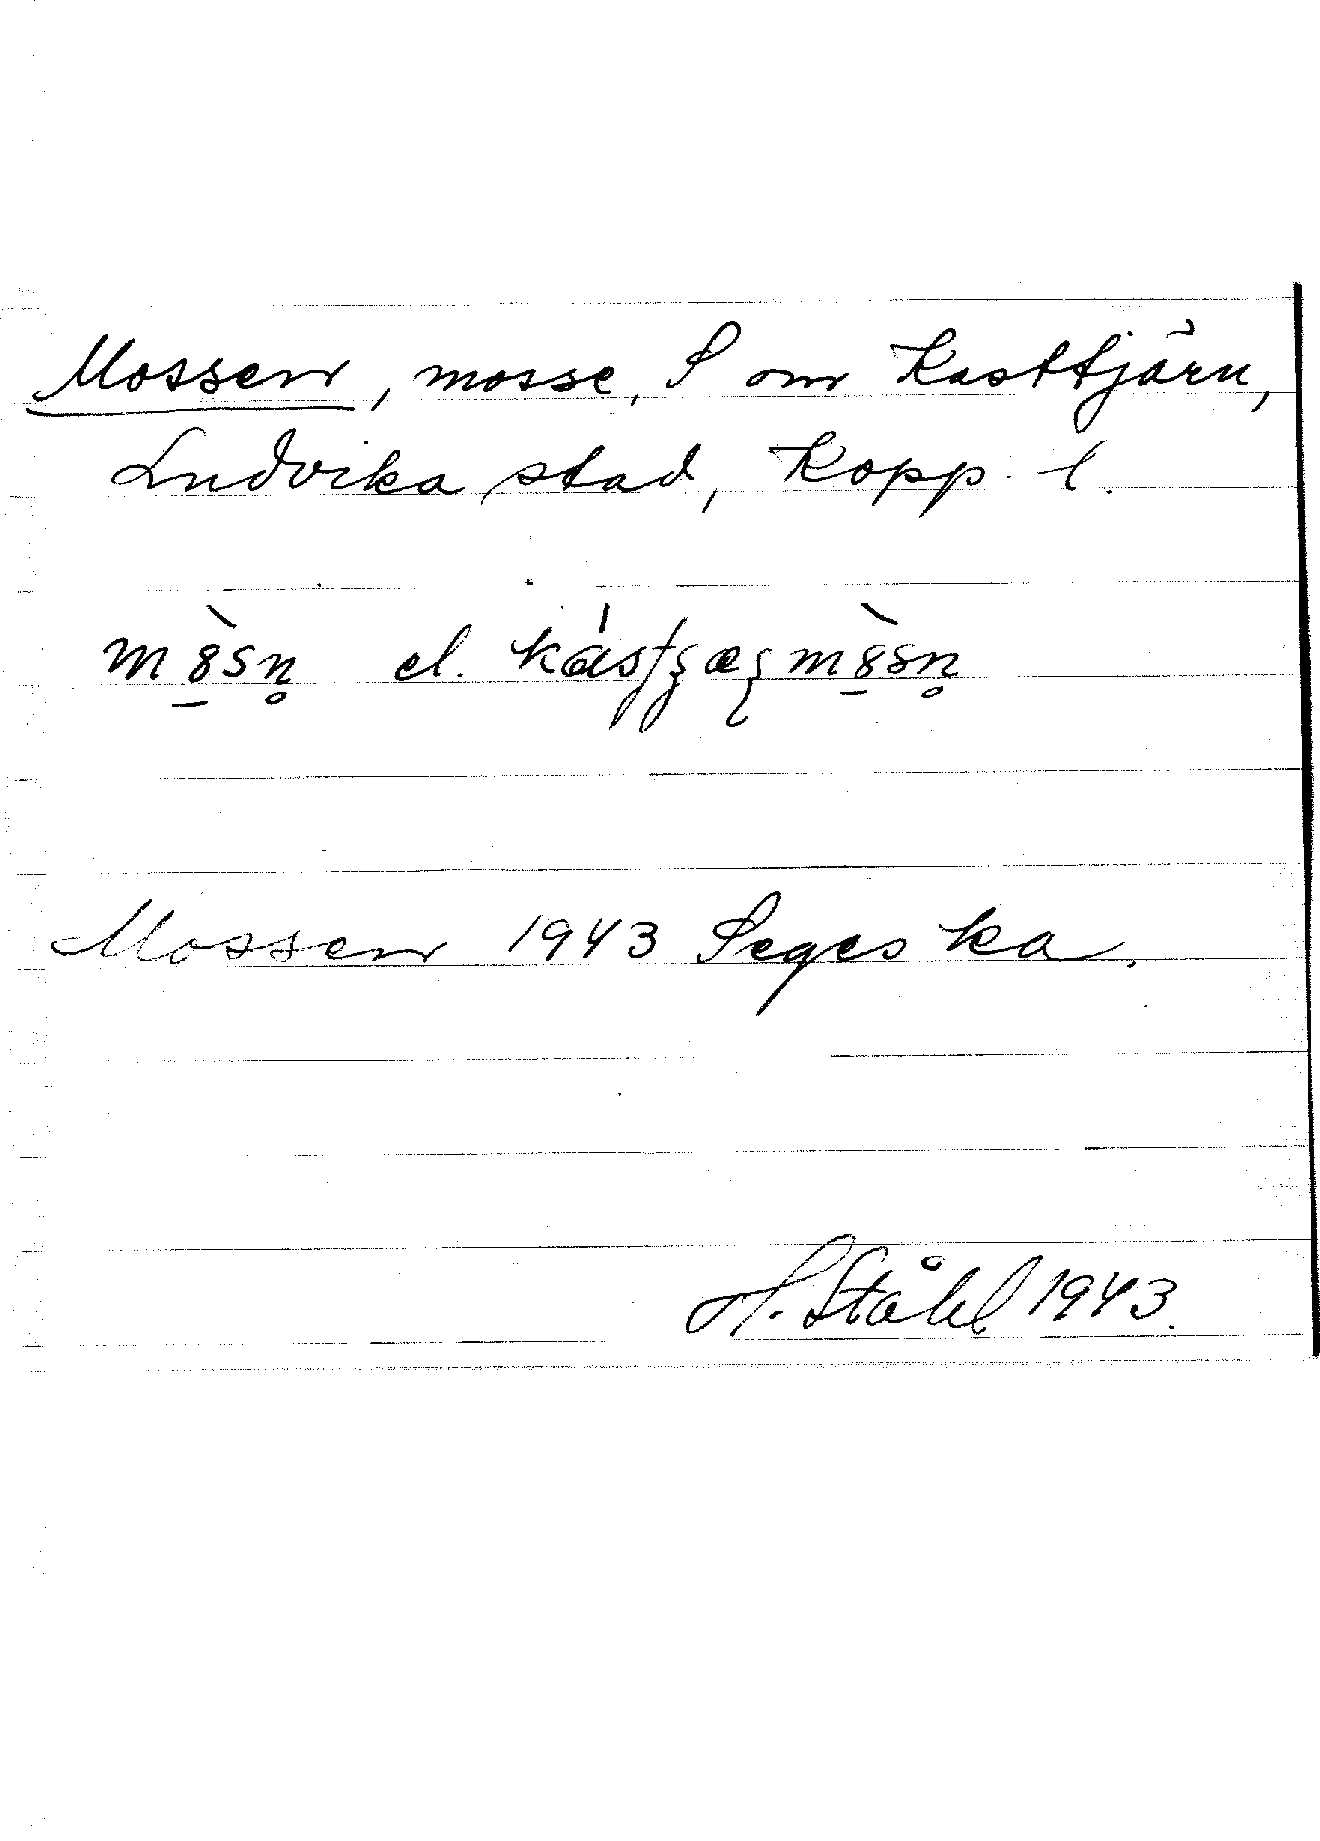 Mossen, mosse, S om Kasttjärn,
Ludvika stad, Kopp. l.
el.
Mossen 1943 Segeska.
H. Ståhl 1943.